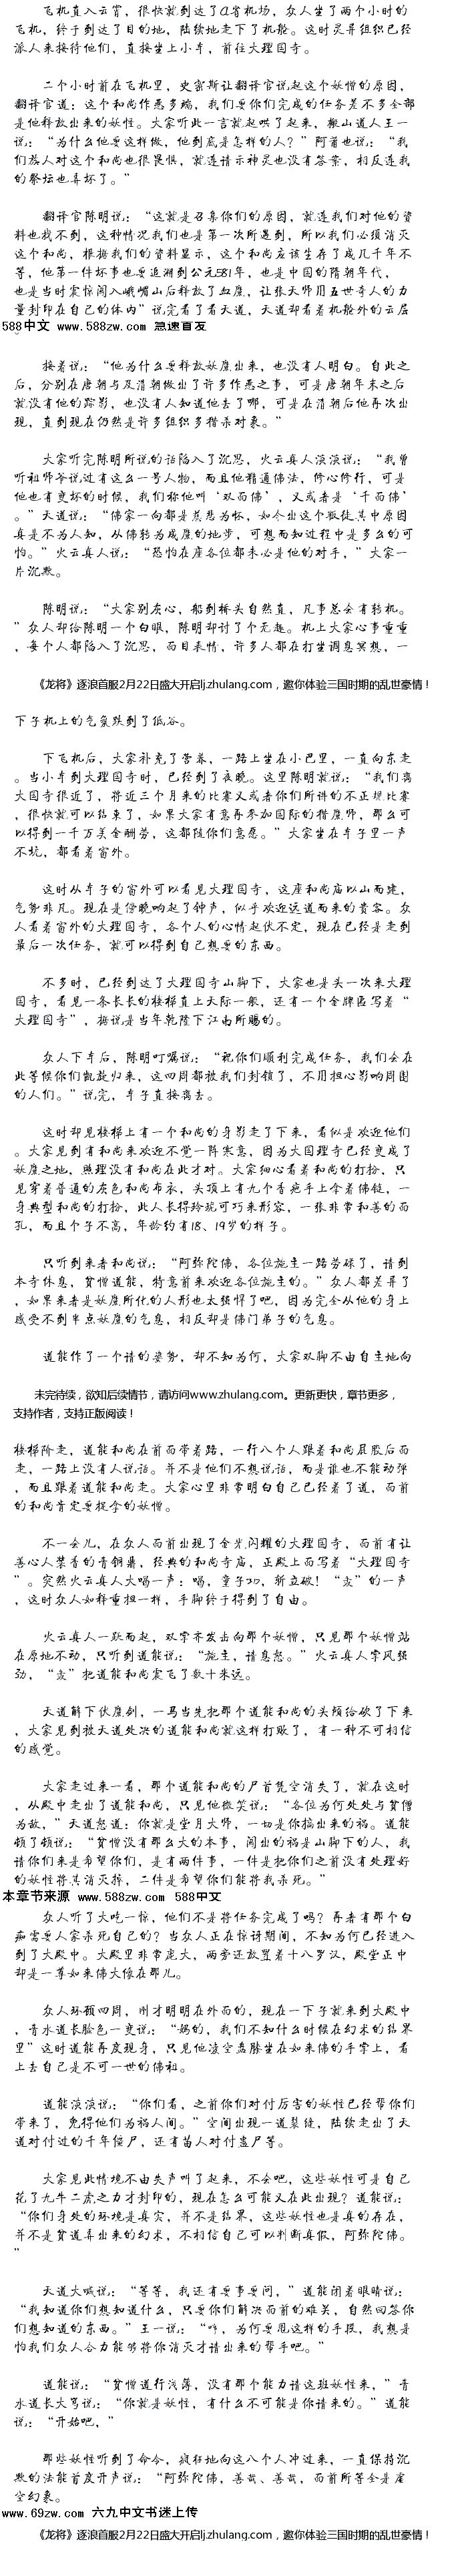 飞机直入云霄，很快就到达了A省机场，众人坐了两个小时的
飞机，终于到达了目的地，陆续地走下了机舱。这时灵异组织已经
派人来接待他们，直接坐上小车，前往大理国寺。
二个小时前在飞机里，史密斯让翻译官说起这个妖僧的原因，
翻译官道：这个和尚作恶多端，我们要你们完成的任务差不多全部
是他释放出来的妖性。大家听此一言就起哄了起来，搬山道人王一
说：“为什么他要这样做，他到底是怎样的人？”阿蕾也说：“我
们族人对这个和尚也很畏惧，就连请示神灵也没有答案，相反连我
的祭坛也弄坏了。”
翻译官陈明说：“这就是召集你们的原因，就连我们对他的资
料也找不到，这种情况我们也是第一次所遇到，所以我们必须消灭
这个和尚，根据我们的资料显示，这个和尚应该生存了成几千年不
等，他第一件坏事也要追溯到公元581年，也是中国的隋朝年代，
也是当时震惊闯入峨嵋山后释放了血魔，让张天师用五世奇人的力
量封印在自己的体内”说完看了看天道，天道却看着机舱外的云层
588中文 www.588zw.com 急速首发
。
接着说：“他为什么要释放妖魔出来，也没有人明白。自此之
后，分别在唐朝与及清朝做出了许多作恶之事，可是唐朝年末之后
就没有他的踪影，也没有人知道他去了哪，可是在清朝后他再次出
现，直到现在仍然是许多组织多猎杀对象。”
大家听完陈明所说的话陷入了沉思，火云真人淡淡说：“我曾
听祖师爷说过有这么一号人物，而且他精通佛法，修心修行，可是
他也有变坏的时候，我们称他叫‘双面佛’，又或者是‘千面佛’
。”天道说：“佛家一向都是慈悲为怀，如今出了个叛徒其中原因
真是不为人知，从佛转为成魔的地步，可想而知过程中是多么的可
怕。”火云真人说：“恐怕在座各位都未必是他的对手，”大家一
片沉默。
陈明说：“大家别灰心，船到桥头自然直，凡事总会有转机。
”众人却给陈明一个白眼，陈明却讨了个无趣。机上大家心事重重
，每个人都陷入了沉思，面目表情，许多人都在打坐调息冥想，一
《龙将》逐浪首服2月22日盛大开启lj.zhulang.com，邀你体验三国时期的乱世豪情！
下子机上的气氛跌到了低谷。
下飞机后，大家补充了营养，一路上坐在小巴里，一直向东走
。当小车到大理国寺时，已经到了夜晚。这里陈明就说：“我们离
大国寺很近了，将近三个月来的比赛又或者你们所讲的不正规比赛
，很快就可以结束了，如果大家有意再参加国际的猎魔师，那么可
以得到一千万美金酬劳，这都随你们意愿。”大家坐在车子里一声
不坑，都看着窗外。
这时从车子的窗外可以看见大理国寺，这座和尚庙以山而建，
气势非凡。现在是傍晚响起了钟声，似乎欢迎远道而来的贵客。众
人看着窗外的大理国寺，各个人的心情起伏不定，现在已经是走到
最后一次任务，就可以得到自己想要的东西。
不多时，已经到达了大理国寺山脚下，大家也是头一次来大理
国寺，看见一条长长的楼梯直上天际一般，还有一个金牌匾写着“
大理国寺”，据说是当年乾隆下江南所赐的。
众人下车后，陈明叮嘱说：“祝你们顺利完成任务，我们会在
此等候你们凯旋归来，这四周都被我们封锁了，不用担心影响周围
的人们。”说完，车子直接离去。
这时却见楼梯上有一个和尚的身影走了下来，看似是欢迎他们
。大家见到有和尚来欢迎不觉一阵寒意，因为大国理寺已经变成了
妖魔之地，照理没有和尚在此才对。大家细心看着和尚的打扮，只
见穿着普通的灰色和尚布衣，头顶上有九个香疤手上拿着佛链，一
身典型和尚的打扮，此人长得玲珑可巧来形容，一张非常和善的面
孔，而且个子不高，年龄约有18、19岁的样子。
只听到来者和尚说：“阿弥陀佛，各位施主一路劳碌了，请到
本寺休息，贫僧道能，特意前来欢迎各位施主的。”众人都差异了
，如果来者是妖魔所化的人形也太强悍了吧，因为完全从他的身上
感受不到半点妖魔的气息，相反却是佛门弟子的气息。
道能作了一个请的姿势，却不知为何，大家双脚不由自主地向
未完待续，欲知后续情节，请访问www.zhulang.com。更新更快，章节更多，
支持作者，支持正版阅读！
楼梯阶走，道能和尚在前面带着路，一行八个人跟着和尚屁股后面
走，一路上没有人说话。并不是他们不想说话，而是谁也不能动弹
，而且跟着道能和尚走。大家心里非常明白自己已经着了道，面前
的和尚肯定要捉拿的妖僧。
不一会儿，在众人面前出现了金光闪耀的大理国寺，面前有让
善心人装香的青铜鼎，经典的和尚寺庙，正殿上面写着“大理国寺
”。突然火云真人大喝一声：喝，童子功，斩立破！“轰”的一声
，这时众人如释重担一样，手脚终于得到了自由。
火云真人一跃而起，双掌齐发击向那个妖僧，只见那个妖僧站
在原地不动，只听到道能说：“施主，请息怒。”火云真人掌风强
劲，“轰”把道能和尚震飞了数十米远。
天道解下伏魔剑，一马当先把那个道能和尚的头颅给砍了下来
，大家见到被天道处决的道能和尚就这样打败了，有一种不可相信
的感觉。
大家走过来一看，那个道能和尚的尸首凭空消失了，就在这时
，从殿中走出了道能和尚，只见他微笑说：“各位为何处处与贫僧
为敌，”天道怒道：你就是堂月大师，一切是你搞出来的祸。道能
顿了顿说：“贫僧没有那么大的本事，闯出的祸是山脚下的人，我
请你们来是希望你们，是有两件事，一件是把你们之前没有处理好
的妖性将其消灭掉，二件是希望你们能将我杀死。”
本章节来源 www.588zw.com 588中文
众人听了大吃一惊，他们不是将任务完成了吗？再者有那个白
痴需要人家杀死自己的？当众人正在惊讶期间，不知为何已经进入
到了大殿中。大殿里非常庞大，两旁还放置着十八罗汉，殿堂正中
却是一尊如来佛大像在那儿。
众人环顾四周，刚才明明在外面的，现在一下子就来到大殿中
，青水道长脸色一变说：“妈的，我们不知什么时候在幻术的结界
里”这时道能再度现身，只见他凌空盘膝坐在如来佛的手掌上，看
上去自己是不可一世的佛祖。
道能淡淡说：“你们看，之前你们对付厉害的妖性已经帮你们
带来了，免得他们为祸人间。”空间出现一道裂缝，陆续走出了天
道对付过的千年僵尸，还有苗人对付蛊尸等。
大家见此情境不由失声叫了起来，不会吧，这些妖性可是自己
花了九牛二虎之力才封印的，现在怎么可能又在此出现？道能说：
“你们身处的环境是真实，并不是结界，这些妖性也是真的存在，
并不是贫道弄出来的幻术，不相信自己可以判断真假，阿弥陀佛。
”
天道大喊说：“等等，我还有要事要问，”道能闭着眼睛说：
“我知道你们想知道什么，只要你们解决面前的难关，自然回答你
们想知道的东西。”王一说：“哼，为何要甩这样的手段，我想是
怕我们众人合力能够将你消灭才请出来的帮手吧。”
道能说：“贫僧道行浅薄，没有那个能力请这班妖性来，”青
水道长大骂说：“你就是妖性，有什么不可能是你请来的。”道能
说：“开始吧，”
那些妖性听到了命令，疯狂地向这八个人冲过来，一直保持沉
默的法能首度开声说：“阿弥陀佛，善哉、善哉，面前所等全是虚
空幻象。
www.69zw.com 六九中文书迷上传
《龙将》逐浪首服2月22日盛大开启lj.zhulang.com，邀你体验三国时期的乱世豪情！